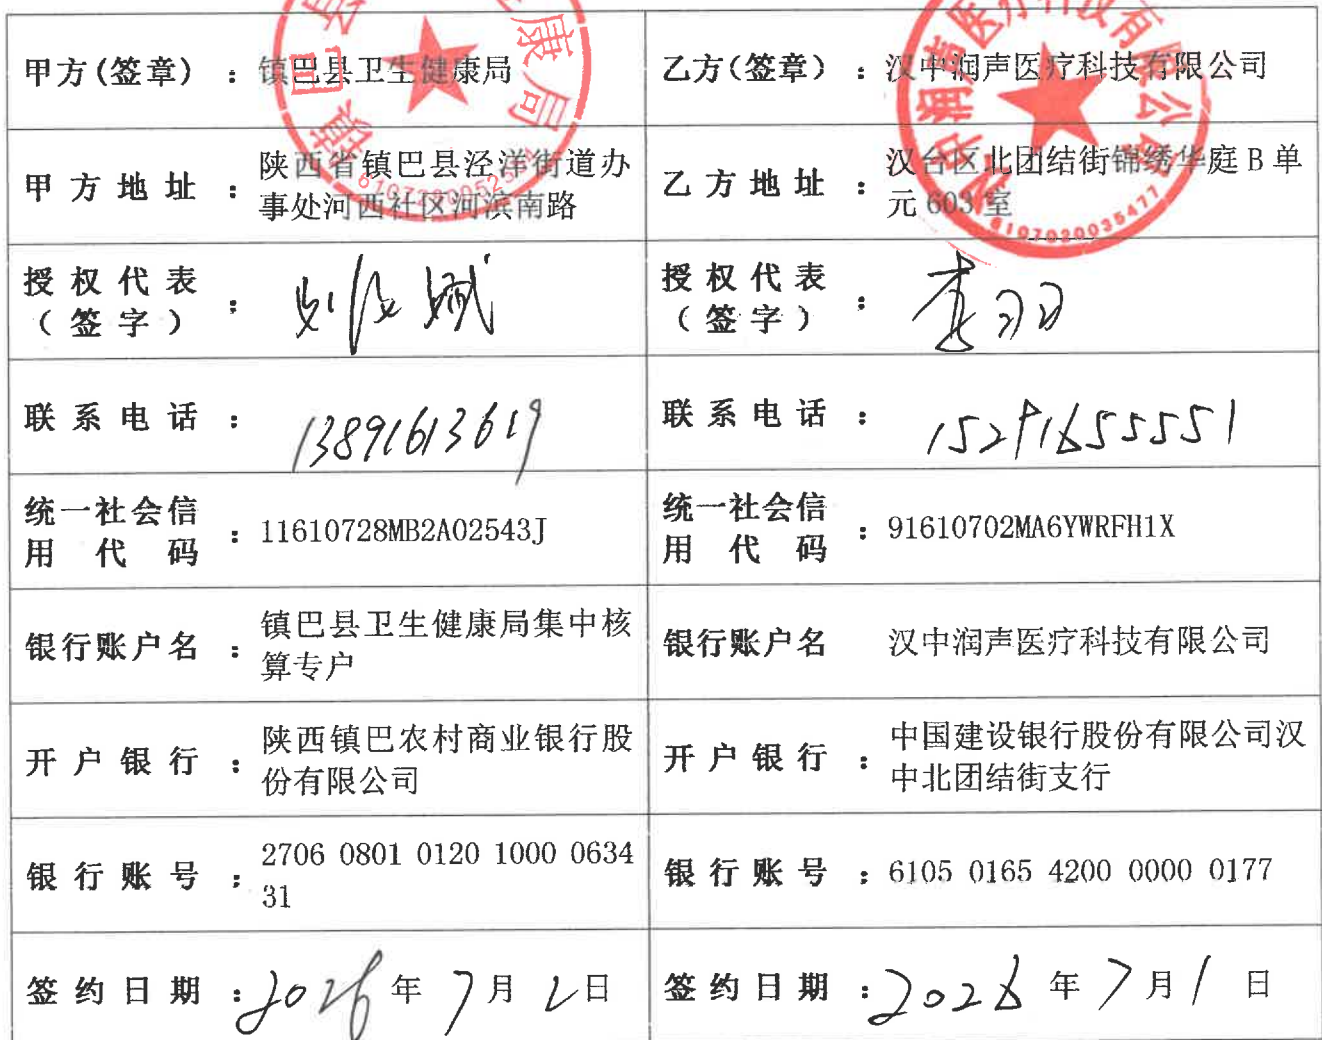 甲方(签章)：镇巴县卫生健康局
乙方(签章)：汉中润声医疗科技有限公司
甲方地址：陕西省镇巴县泾洋街道办
事处河西社区河滨南路
乙方地址：汉台区北团结街锦绣华庭 B 单
元 603 室
6107020035477
授权代表
（签字）：
授权代表
（签字）：李羽
联系电话：13891613619
联系电话：15291655551
统一社会信
用代码：11610728MB2A02543J
统一社会信
用代码：91610702MA6YWRFH1X
银行账户名：镇巴县卫生健康局集中核
算专户
银行账户名 汉中润声医疗科技有限公司
开户银行：陕西镇巴农村商业银行股
份有限公司
开户银行：中国建设银行股份有限公司汉
中北团结街支行
银行账号：2706 0801 0120 1000 0634
31
银行账号：6105 0165 4200 0000 0177
签约日期：2026年7月2日
签约日期：2026年7月1日